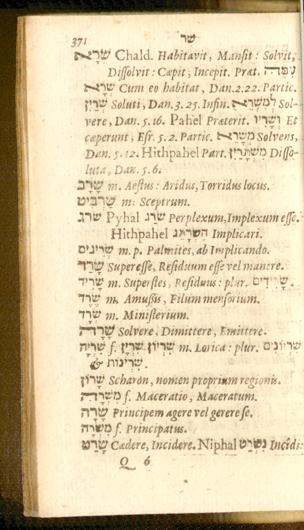 371 שר
שְׁרָא Chald. Habitavit, Mansit: Solvit,
Dissolvit: Capit, Incepit. Præt.
שְׁרָא Cum eo habitat, Dan.2.22. Partic.
שְׁרַיִן Soluti, Dan. 3. 25. Infin. לְמִשְׁרֵא Sol-
vere, Dan. 5. 16. Pahel Præterit. וְשָׁרִיו Et
cœperunt, Esr. 5. 2. Partic. מְשָׁרֵא Solvens,
Dan. 5. 12. Hithpahel Part. מִשְׁתָּרַיִן Disso-
luta, Dan. 5. 6.
שָׁרָב m. Æstus: Aridus, Torridus locus.
שַׁרְבִיט m: Sceptrum.
שרג Pyhal שֹׂרַג Perplexum, Implexum esse.
Hithpahel הִשְׂתָּרֵג Implicari.
שָׂרִיגִים m. p. Palmites, ab Implicando.
שָׂרַד Superesse, Residuum esse vel manere.
שָׂרִיד m. Superstes, Residuus: plur. שְׂרִידִים.
שֶׂרֶד m. Amussis, Filum mensorium.
שְׂרָד m. Ministerium.
שָׁרָה Solvere, Dimittere, Emittere.
שִׁרְיָה f. שִׁרְיוֹן שִׁרְיָן m. Lorica: plur. שִׁרְיוֹנִים
& שִׁרְיֹנוֹת.
שָׁרוֹן Scharón, nomen proprium regionis.
מִשְׁרָה f. Maceratio, Maceratum.
שָׂרָה Principem agere vel gerere se.
מִשְׂרָה f. Principatus.
שָׂרַט Cædere, Incidere. Niphal נִשְׂרַט Incîdi:
Q 6